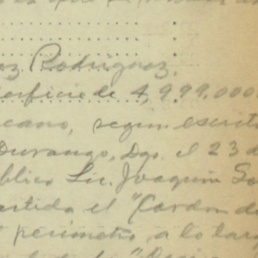 az Rodríguez.
erficie de 4,999.000
icano, segun escrit
Durango, Dgo. el 23 d
blico Lic. Joaquín
artida el "Cordon d
perimetro, a lo larg